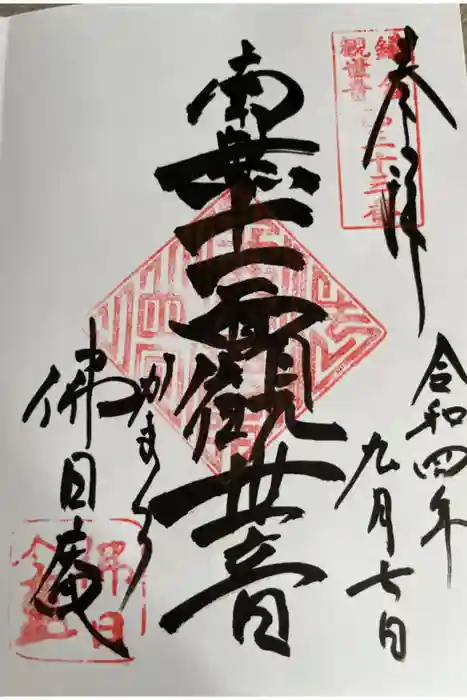 奉拝
鎌倉
観世音第三十三番
令和四年
九月七日
南無十一面観世音
かまくら
佛日庵